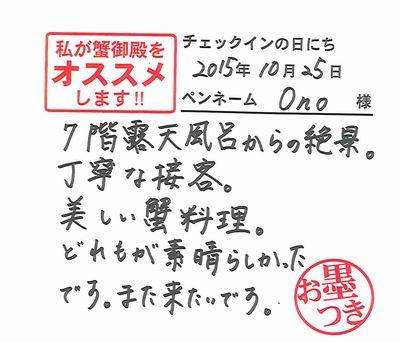 私が蟹御殿を
オススメ
します!!
チェックインの日にち
2015年10月25日
ペンネーム Ono 様
7階露天風呂からの絶景。
丁寧な接客。
美しい蟹料理。
どれもが素晴らしかった
です。また来たいです。
墨
おつき